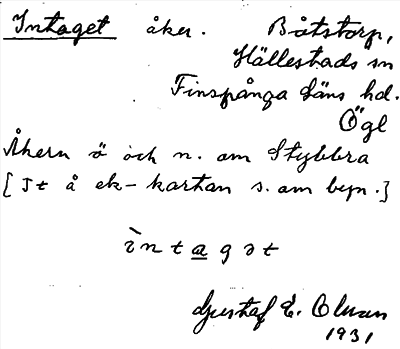 Intaget åker. Båtstorp,
Hällestads sn
Finspånga läns hd.
Ögl
Åkern ö och n. om Stybbra
[ It å ek-kartan s. om byn.]
ìntagət
Gustaf E. Olsson
1931